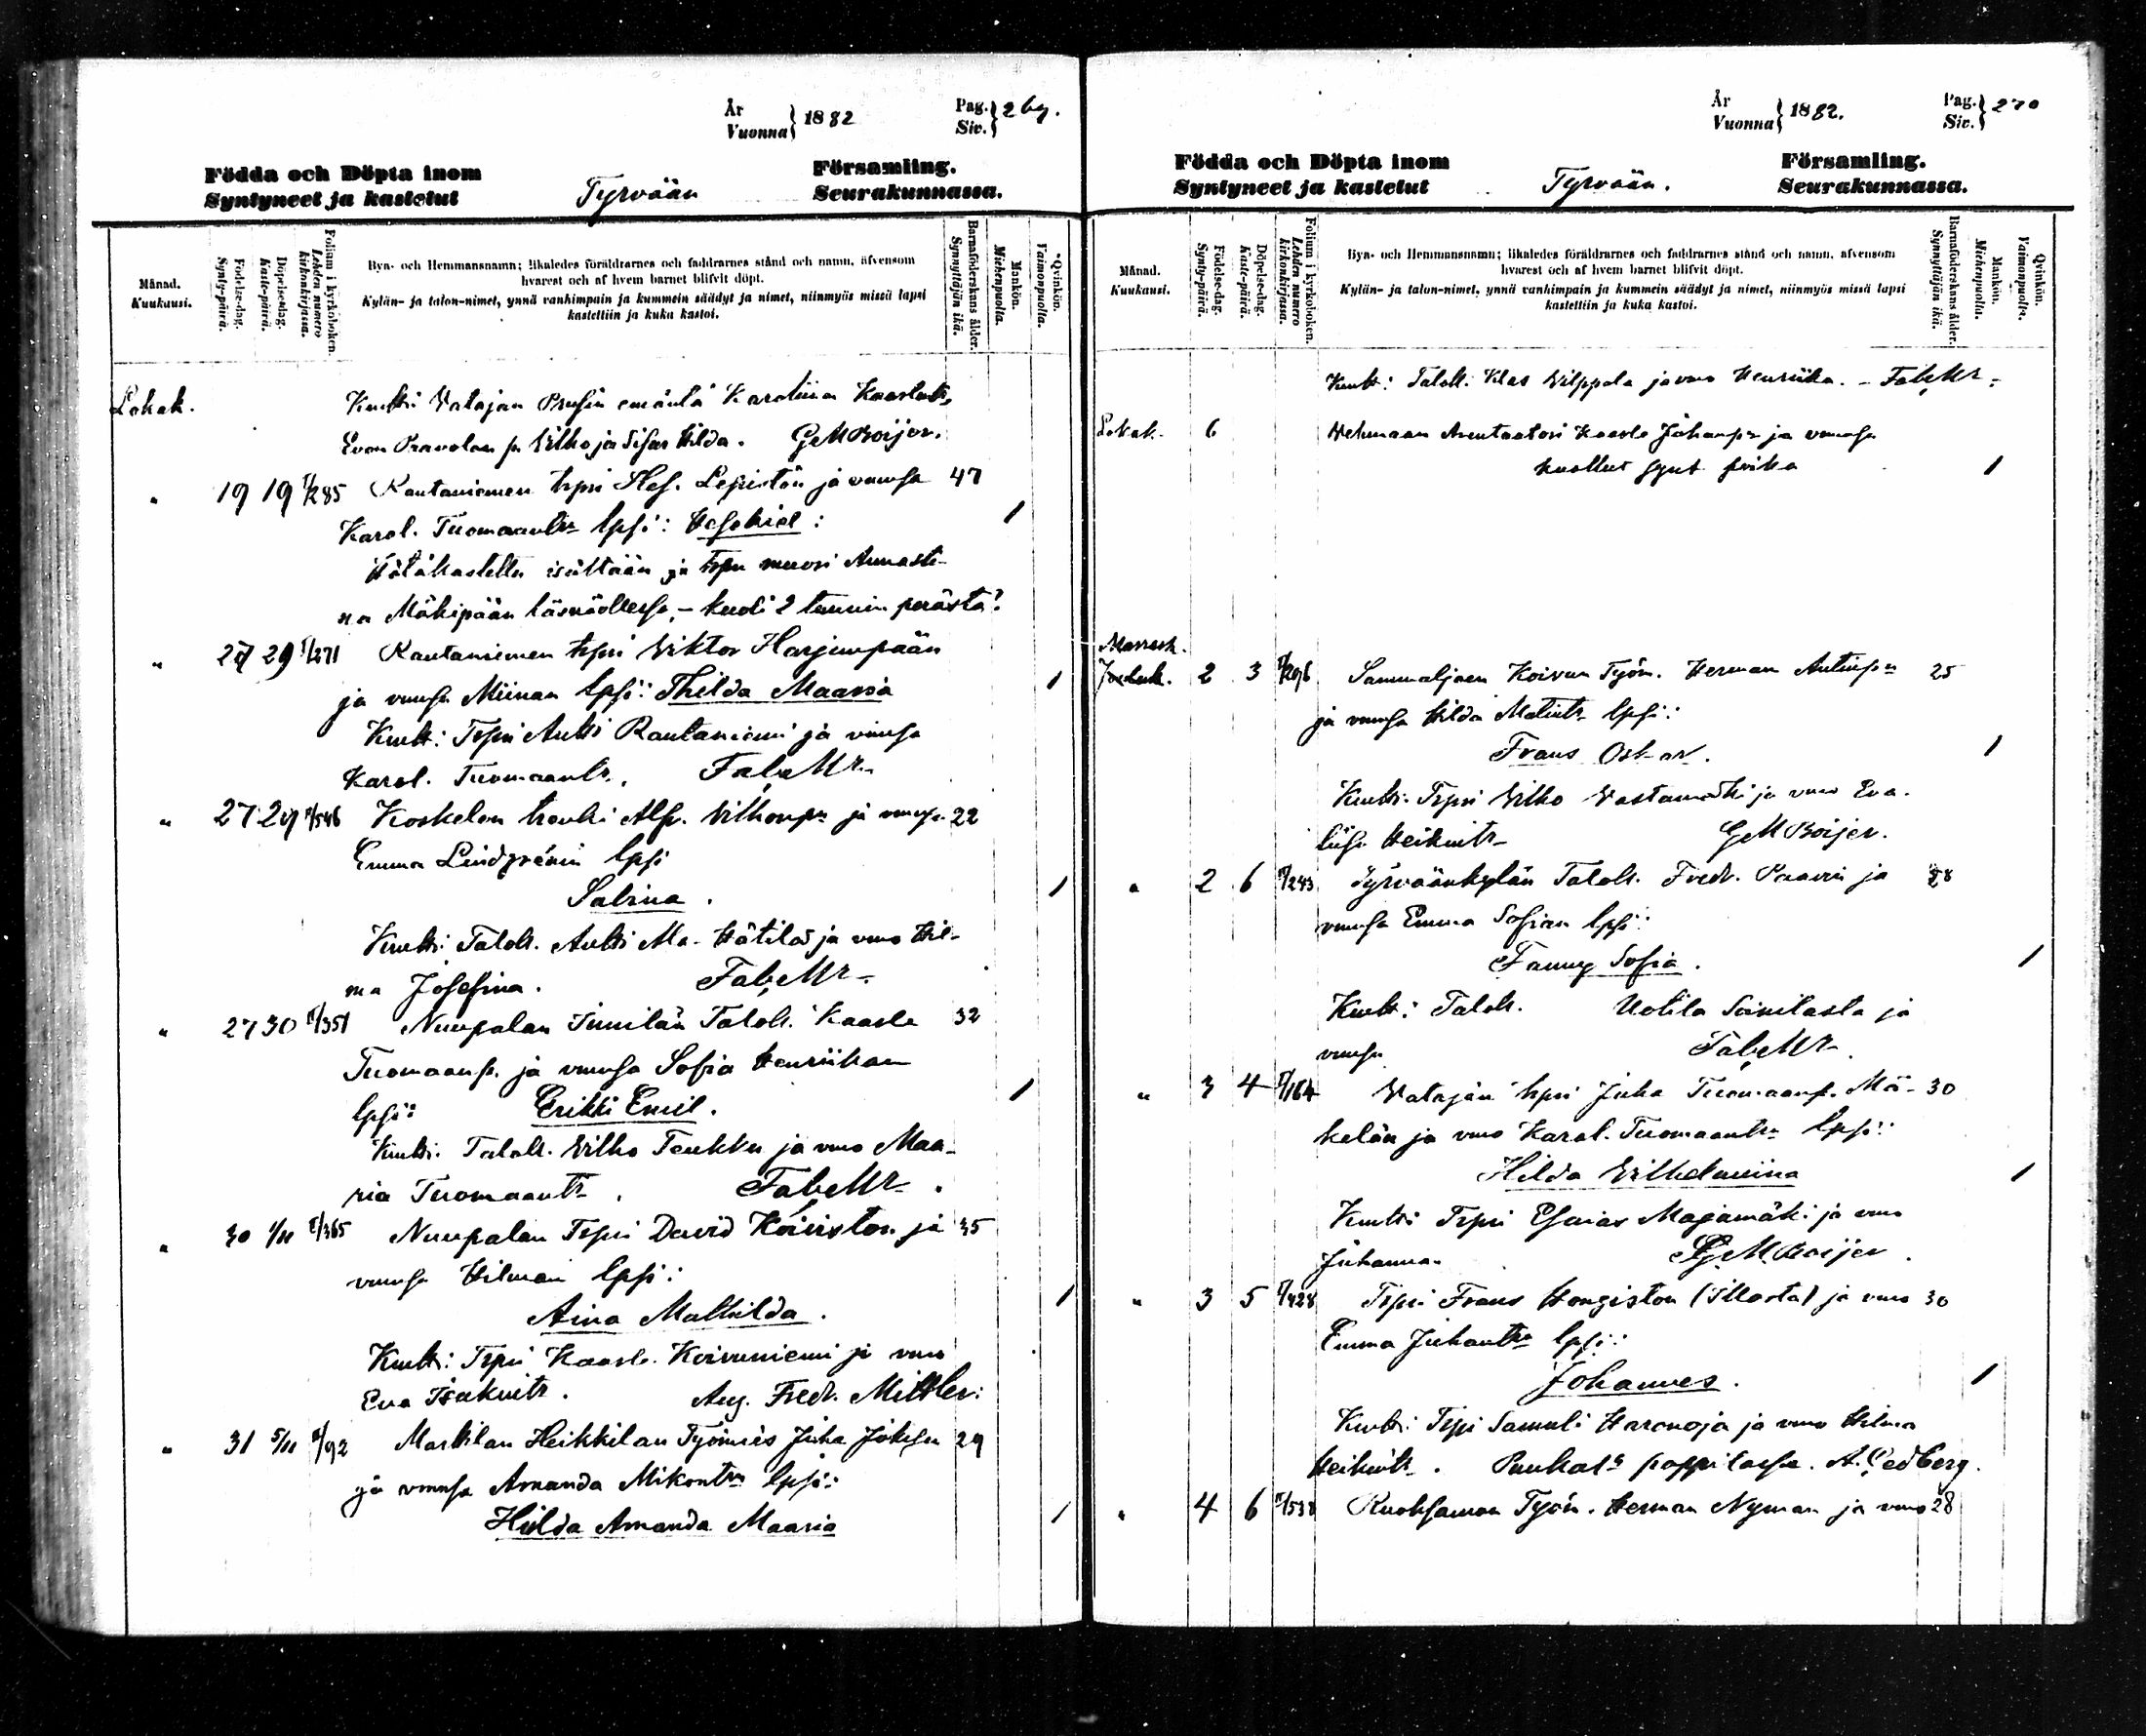 År
Vuonna } 1882
Pag.
Siv. } 269.
Födda och Döpta inom
Syntyneet ja kastetut
Tyrvään
Församling.
Seurakunnassa.
Månad.
Kuukausi.
Födelse-dag.
Synty-päivä.
Döpelse-dag.
Kaste-päivä.
Folium i kyrkoboken.
Lehden numero kirkonkirjassa.
Bya- och Hemmansnamn; likaledes föräldrarnes och faddrarnes stånd och namn, äfvensom
hvarest och af hvem barnet blifvit döpt.
Kylän- ja talon-nimet, ynnä vanhimpain ja kummein säädyt ja nimet, niinmyös missä lapsi
kastettiin ja kuka kastoi.
Barnaföderskans ålder.
Synnyttäjän ikä.
Mankön.
Miehenpuolta.
Qvinkön.
Vaimonpuolta.
Lokak. Kmtti: Vatajan emäntä Karoliina
Vilho ja Hilda. GMBoijer.
" 19 19 285 Rautaniemen Lepistön ja vmnsa 47
Karol. Tuomaantr lpsi: Hesekiel: 1
Hätäkastettu isältään ja muori Annasti-
na Mäkipään läsnäollessa, – kuoli 2 tunnin perästä.
" 27 29 271 Rautaniemen Viktor Harjunpään
ja vmnsa Miinan lpsi: Thilda Maaria 1
Kmtt: Antti Rautaniemi ja vmnsa
Karol. Tuomaantr.
" 27 29 546 Koskelon Alfr. Vilhonpn ja vmnsa 22
Emma Lindgrénin lpsi
Sabina. 1
Kmtti: Talok. Antti Ala-Hätilä ja vmo Hil-
ma Josefina.
" 27 30 351 Nuupalan Talok. Kaarle 32
Tuomaanp. ja vmnsa Sofia Henriikan
lpsi: Erikki Emil. 1
Kmtti. Talok. Vilho Teukku ja vmo Maa-
ria Tuomaantr.
" 30 1/11 365 Nuupalan David Koiviston ja 35
vmnsa Hilman lpsi:
Aina Mathilda. 1
Kmtt: Kaarle Koivuniemi ja vmo
Eva Isakintr. Aug. Fredr. Mittler.
" 31 5/11 92 Markilan Heikkilan Työmies Juha 29
ja vmnsa Amanda Mikontr lpsi:
Hilda Amanda Maaria 1
År
Vuonna } 1882.
Pag.
Siv. } 270
Födda och Döpta inom
Syntyneet ja kastetut
Tyrvään.
Församling.
Seurakunnassa.
Månad.
Kuukausi.
Födelse-dag.
Synty-päivä.
Döpelse-dag.
Kaste-päivä.
Folium i kyrkoboken.
Lehden numero kirkonkirjassa.
Bya- och Hemmansnamn; likaledes föräldrarnes och faddrarnes stånd och namn, äfvensom
hvarest och af hvem barnet blifvit döpt.
Kylän- ja talon-nimet, ynnä vanhimpain ja kummein säädyt ja nimet, niinmyös missä lapsi
kastettiin ja kuka kastoi.
Barnaföderskans ålder.
Synnyttäjän ikä.
Mankön.
Miehenpuolta.
Qvinkön.
Vaimonpuolta.
Kmtt: Talok. Klas Vilppala ja vmo Henriika.
Lokak. 6 Kaarle Juhanpn ja vmnsa
kuollut synt. poika 1
Marrask.
2 3 296 Sammaljoen Koivun Työm. Herman Antinpn 25
ja vmnsa Hilda Matintr lpsi:
Frans Oskar. 1
Kmtti. Vilho Vastamäki ja vmo Eva-
liisa Heikintr GMBoijer.
" 2 6 243 Tyrväänkylän Talok. Fredr. Paavin ja 28
vmnsa Emma Sofian lpsi:
Fanny Sofia. 1
Kmtt: Talok. Uotila Soinilasta ja
vmnsa
" 3 4 164 Vatajan Juha Tuomaanp. Mä- 30
kelän ja vmo Karol. Tuomaantr lpsi:
Hilda Vilhelmiina 1
Kmtti Esaias Majamäki ja vmo
Juhanna. GMBoijer.
" 3 5 428 Frans Hongiston (Illosta) ja vmo 30
Emma Juhantr lpsi:
Johannes. 1
Kmtti: Samuli Haronoja ja vmo Hilma
Heikintr. pappilassa. A. Cedberg.
" 4 6 538 Ruohsamon Työm. Herman Nyman ja vmo 28